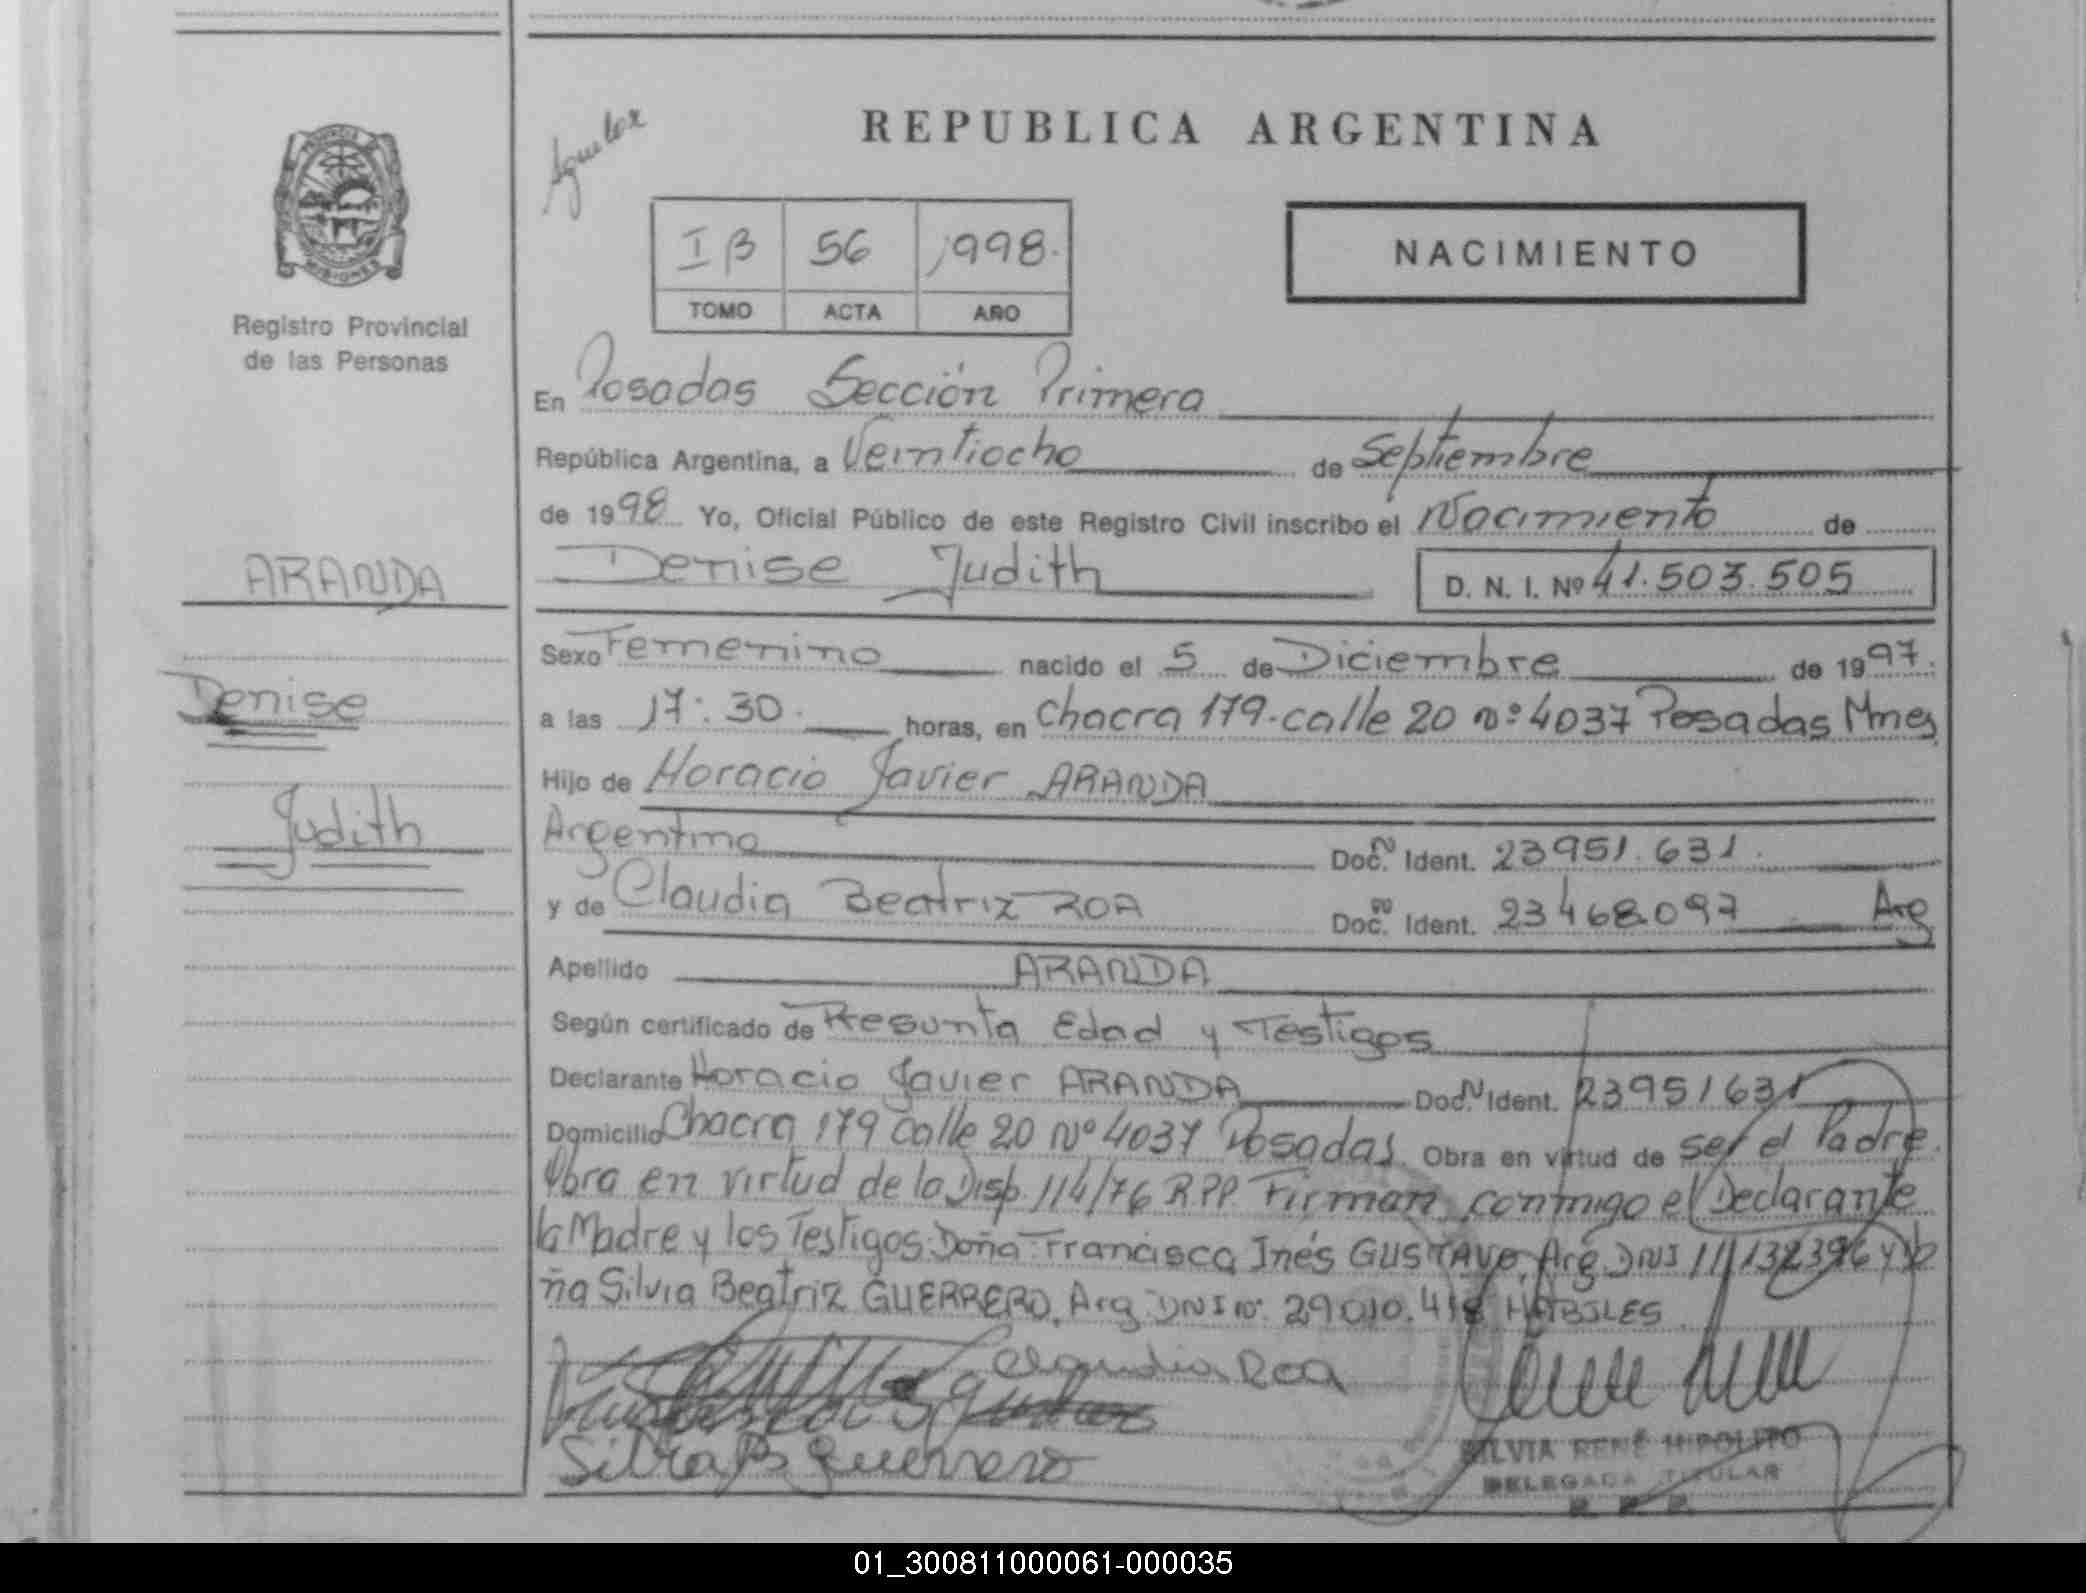 REPUBLICA ARGENTINA
I B 56 1998.
TOMO ACTA AÑO
NACIMIENTO
PROVINCIA
MISIONES
Registro Provincial
de las Personas
ARANDA
Denise
Judith
En Posadas Sección Primera
República Argentina, a Veintiocho de Septiembre
de 1998 Yo, Oficial Público de este Registro Civil inscribo el Nacimiento de
Denise Judith D. N. I. Nº 41.503.505
Sexo Femenino nacido el 5 de Diciembre de 1997.
a las 17:30. horas, en Chacra 179. calle 20 nº 4037 Posadas Mnes
Hijo de Horacio Javier ARANDA
Argentino Doc. N Ident. 23951.631.
y de Claudia Beatriz ROA Doc. Nº Ident. 23468.097 Arg
Apellido ARANDA
Según certificado de Presunta Edad y Testigos
Declarante Horacio Javier ARANDA Doc. N Ident. 23951631
Domicilio Chacra 179 calle 20 Nº 4037 Posadas Obra en virtud de ser el Padre.
Obra en virtud de la Disp. 114/76 R.P.P. Firman conmigo el Declarante
la Madre y los Testigos: Doña Francisca Inés GUSTAVO, Arg. DNI 11132396 y Do
ña Silvia Beatriz GUERRERO, Arg. DNI nº. 29.010.418 HABILES
Claudia Roa
Silvia B Guerrero
SILVIA RENÉ HIPOLITO
DELEGADA TITULAR
R. P. P.
01_300811000061-000035